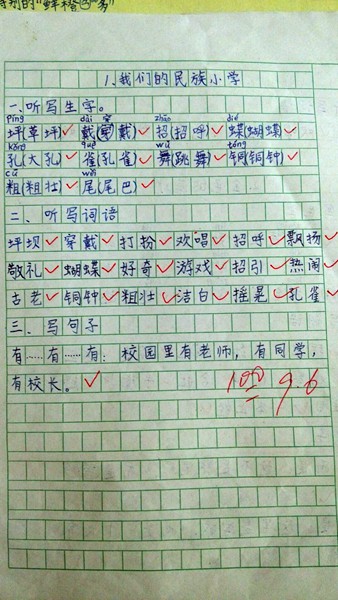 特别的"鲜橙
1.我们的民族小学
一、听写生字。
píng dài 穿 zhāo dié
坪(草坪) 戴(穿戴) 招(招呼) 蝶(蝴蝶)
kǒng què wǔ tóng
孔(大孔) 雀(孔雀) 舞(跳舞) 铜(铜钟)
cū wěi
粗(粗壮) 尾(尾巴)
二、听写词语
坪坝 穿戴 打扮 欢唱 招呼 飘扬
敬礼 蝴蝶 好奇 游戏 招引 热闹
古老 铜钟 粗壮 洁白 摇晃 孔雀
三、写句子
有……有……有:校园里有老师,有同学,
有校长。
100 9.6